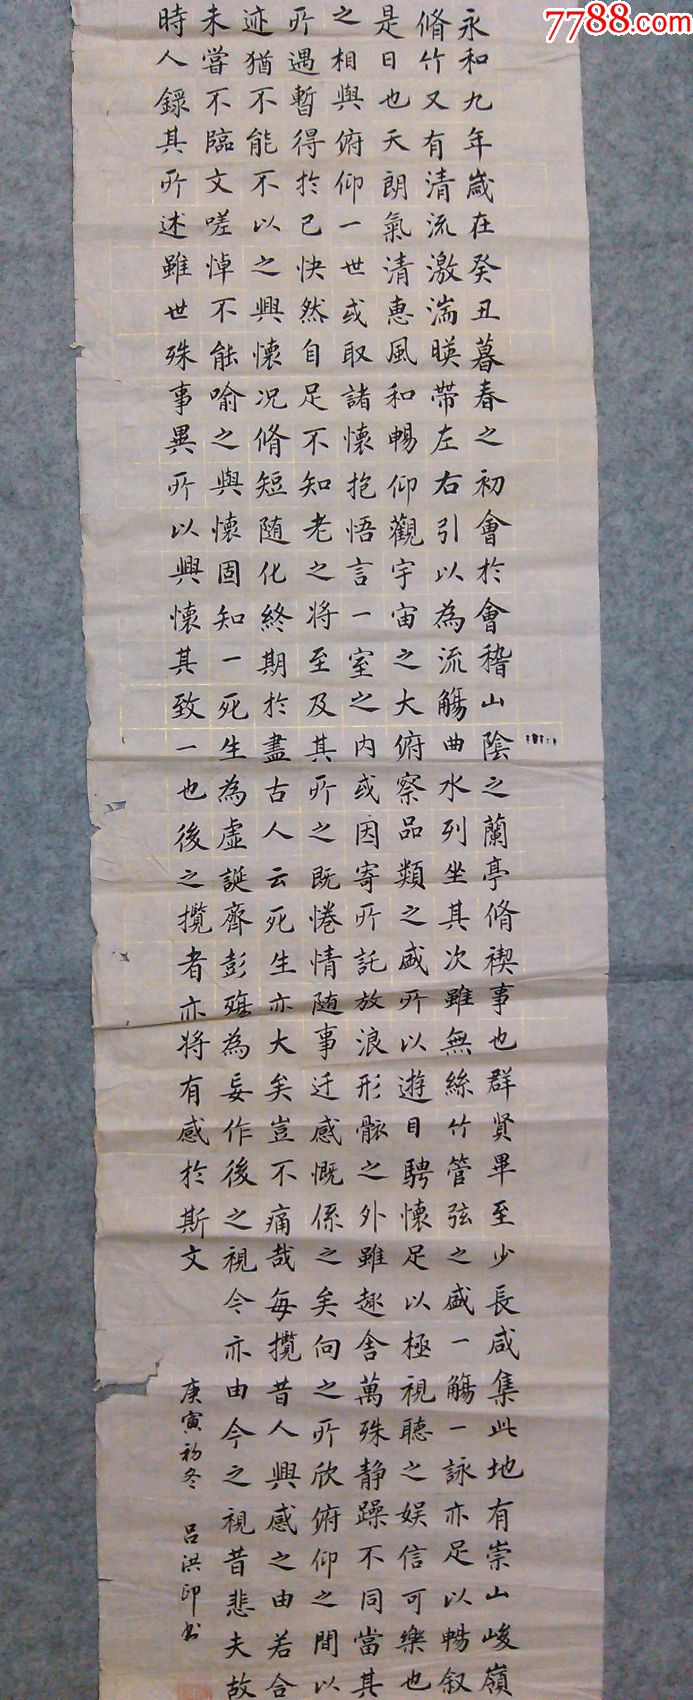 7788.com
永和九年歲在癸丑暮春之初會於會稽山陰之蘭亭脩禊事也群賢畢至少長咸集此地有崇山峻嶺
脩竹又有清流激湍暎帶左右引以為流觴曲水列坐其次雖無絲竹管弦之盛一觴一詠亦足以暢叙
是日也天朗氣清惠風和暢仰觀宇宙之大俯察品類之盛所以遊目騁懷足以極視聽之娛信可樂也
之相與俯仰一世或取諸懷抱悟言一室之內或因寄所託放浪形骸之外雖趣舍萬殊静躁不同當其
所遇暫得於己快然自足不知老之将至及其所之既惓情随事迁感慨係之矣向之所欣俯仰之間以
迹猶不能不以之興懷况脩短随化終期於盡古人云死生亦大矣豈不痛哉每攬昔人興感之由若合
未嘗不臨文嗟悼不能喻之與懷固知一死生為虛誕齊彭殤為妄作後之視今亦由今之視昔悲夫故
時人錄其所述雖世殊事異所以興懷其致一也後之攬者亦将有感於斯文
庚寅初冬 呂洪印书